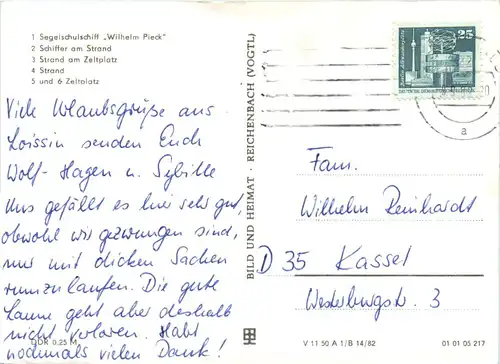 1 Segelschulschiff „Wilhelm Pieck"
2 Schiffer am Strand
3 Strand am Zeltplatz
4 Strand
5 und 6 Zeltplatz
Viele Urlaubsgrüße aus
Loissin senden Euch
Wolf-Hagen u. Sybille
Uns gefällt es hier sehr gut,
obwohl wir gezwungen sind,
nur mit dicken Sachen
rumzulaufen. Die gute
Laune geht aber deshalb
nicht verloren. Habt
nochmals vielen Dank!
DDR 0,25 M
BILD UND HEIMAT · REICHENBACH (VOGTL)
25
a
Fam.
Wilhelm Reinhardt
D 35 Kassel
Westerburgstr. 3
V 11 50 A 1/B 14/82
01 01 05 217